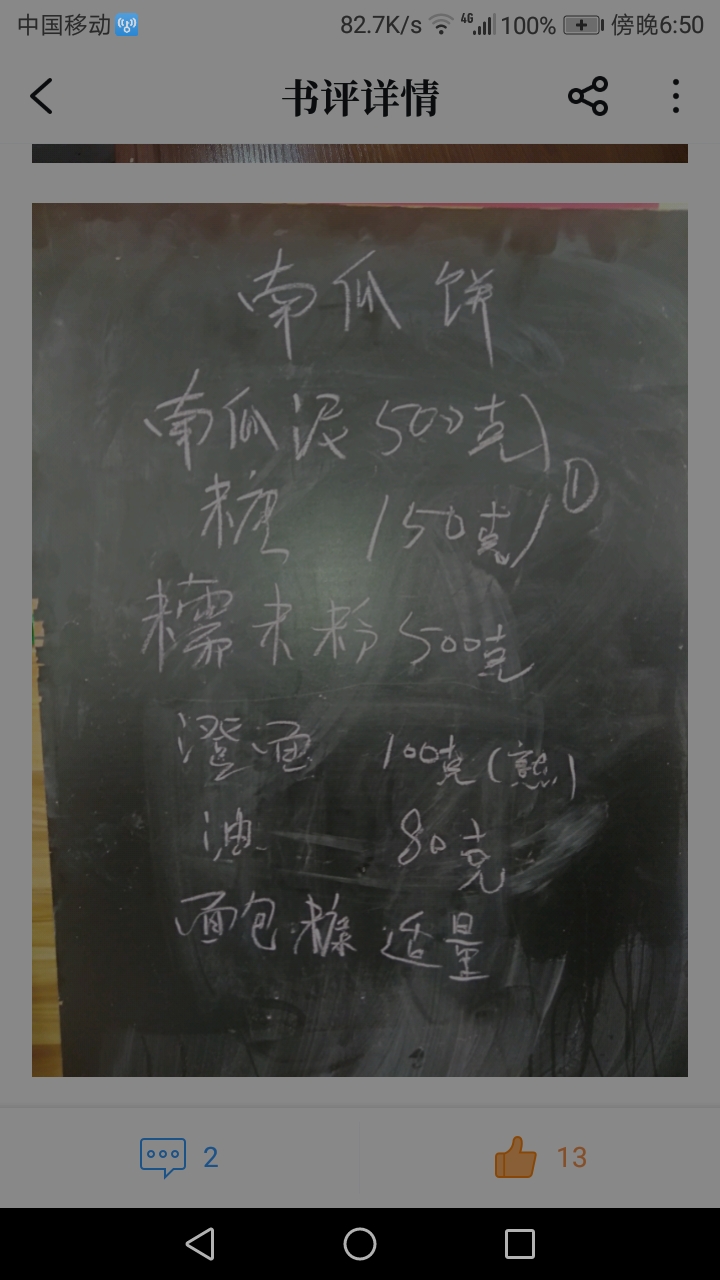 中国移动 82.7K/s 4G 100% 傍晚6:50
书评详情
南瓜饼
南瓜泥 500克
糖 150克 ①
糯米粉 500克
澄面 100克(熟)
油 80克
面包糠 适量
2 13